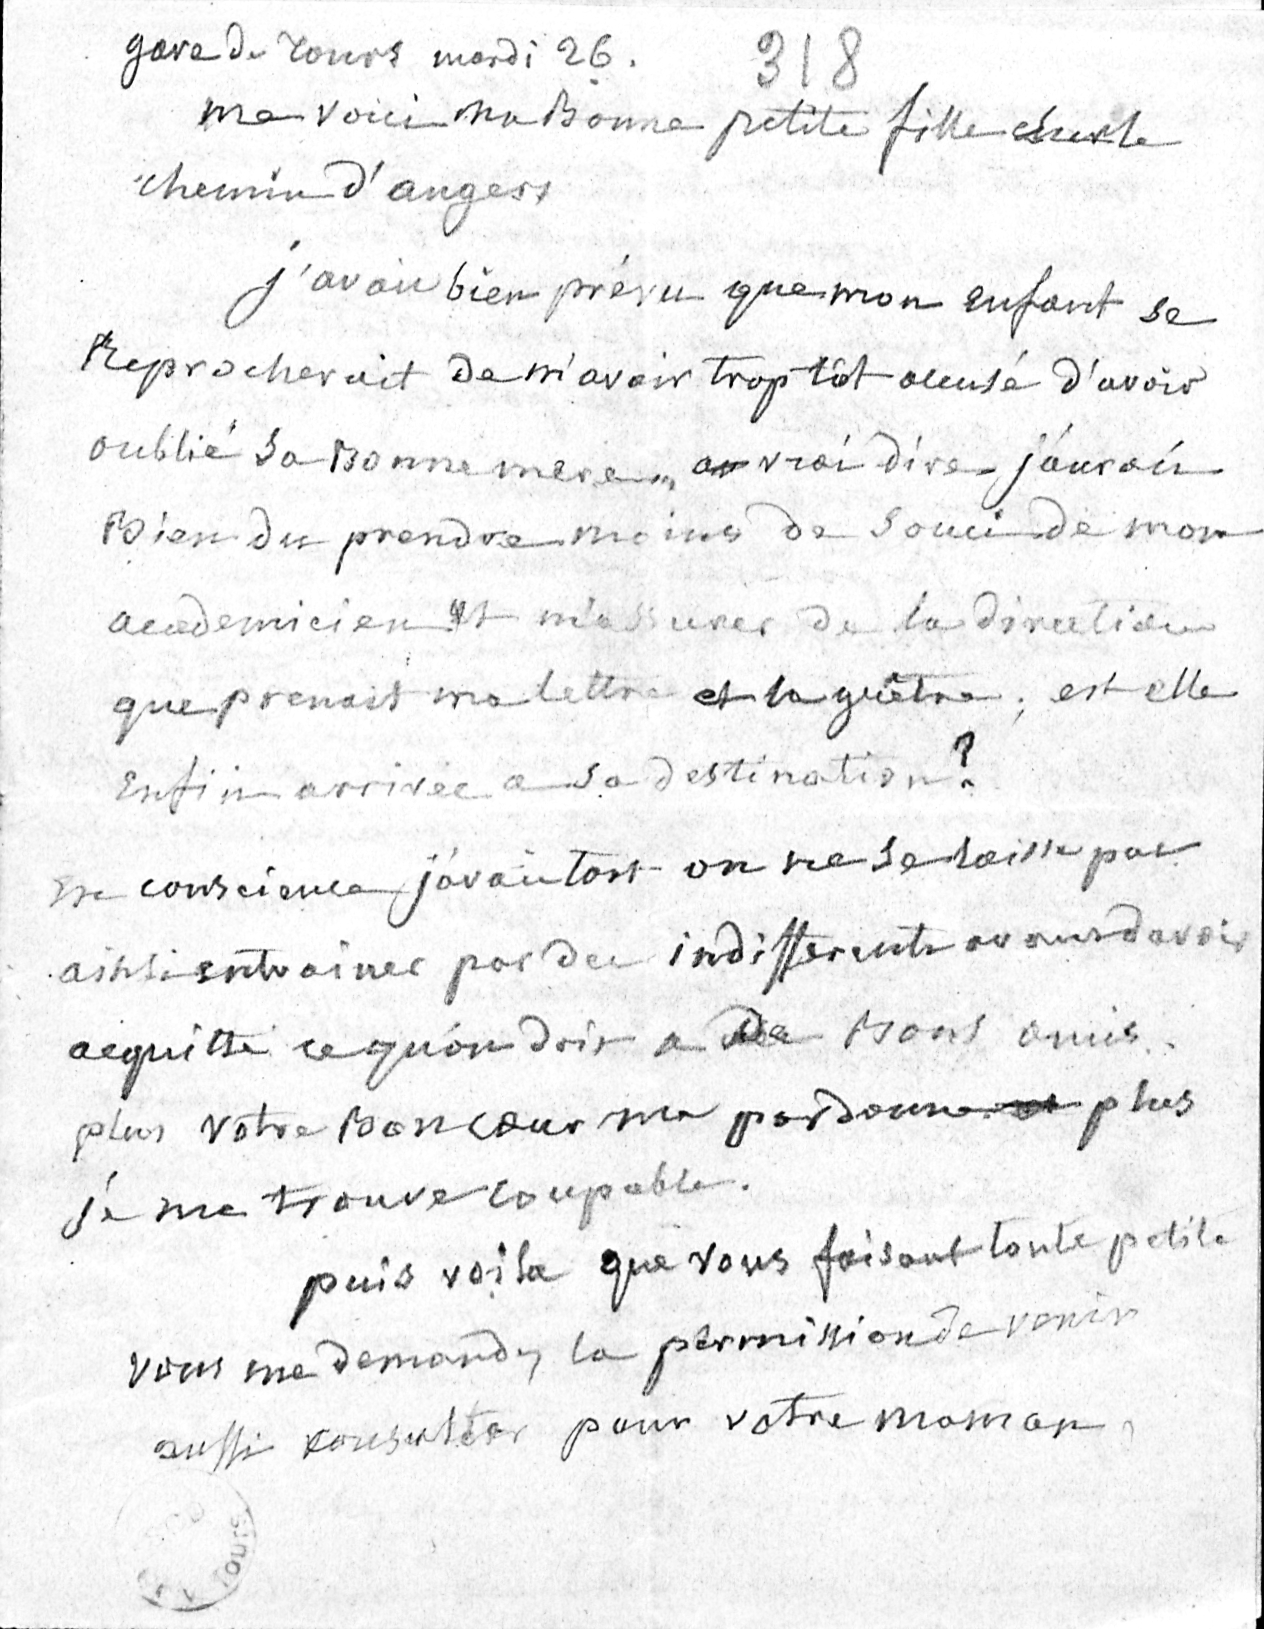 gare de Tours mardi 26.
318
me voici ma Bonne petite fille sur le
chemin d'angers
j'avais bien prévu que mon enfant se
Reprocherait de m'avoir trop tôt accusé d'avoir
oublié sa Bonne mere, a vrai dire j'aurais
Bien du prendre moins de souci de mon
academicien et m'assurer de la direction
que prenait ma lettre et la guêtre; est elle
Enfin arrivée a sa destination?
En conscience j'avais tort on ne se laisse pas
ainsi entrainer par des indifferents avant davoir
acquitté ce qu'on doit a de Bons amis.
plus votre Bon cœur me pardonne plus
je me trouve coupable.
puis voila que vous faisant toute petite
vous me demandez la permission de venir
aussi consulter pour votre maman,
TOURS